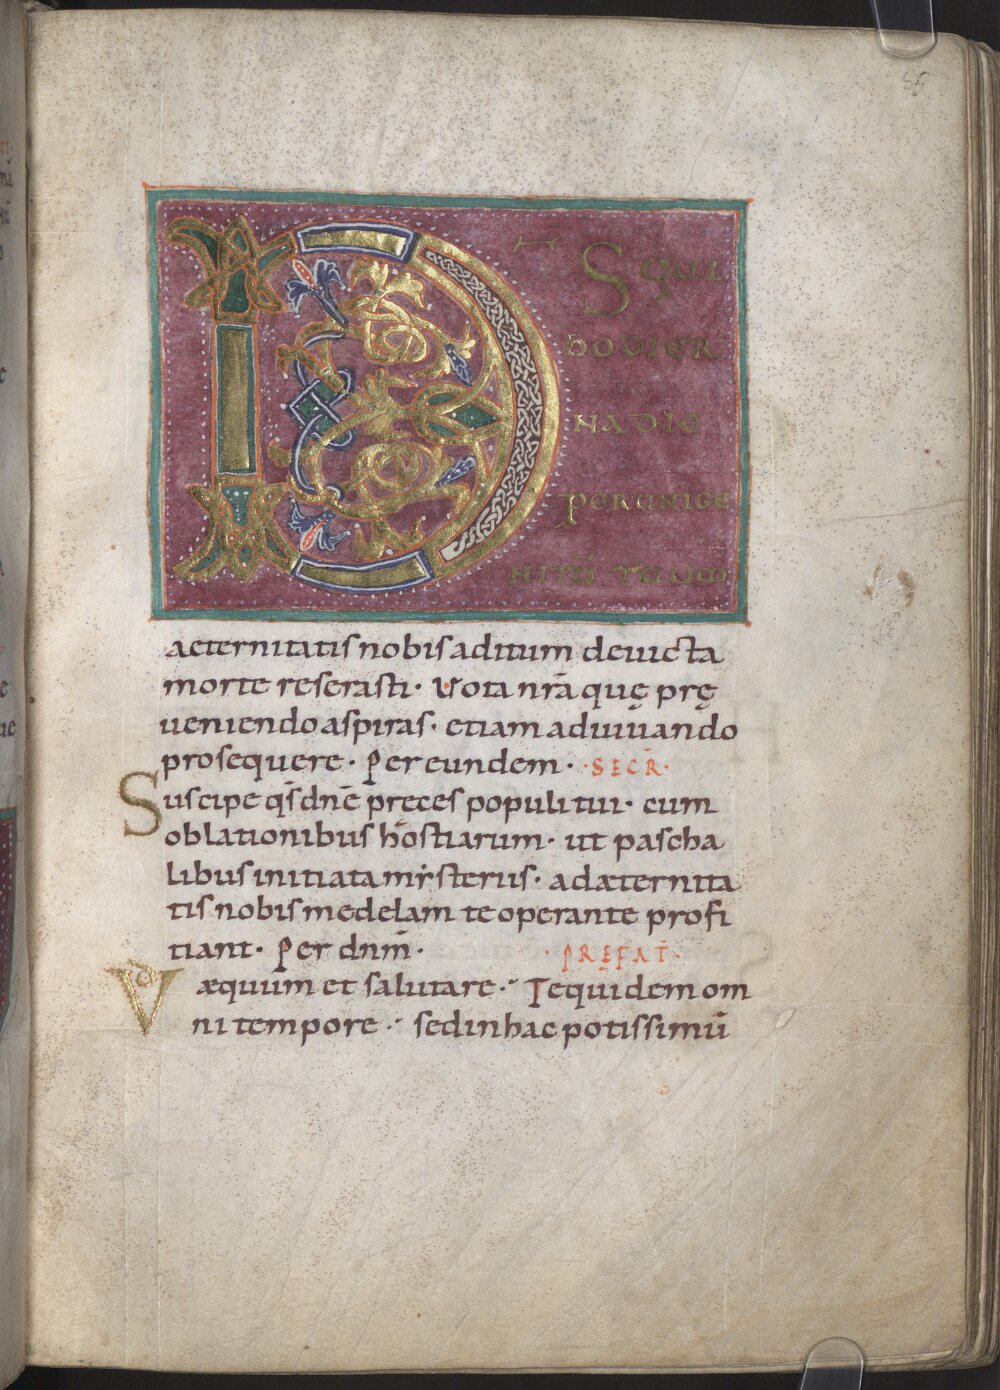 DS qui
hodier
na die
per unige
nitū tuum
aeternitatis nobis aditum deuicta
morte reserasti· Vota nrā quę prę
ueniendo aspiras· etiam adiuuando
prosequere· Per eundem· ·SECR̄·
Suscipe qs̄ dnē preces populi tui· cum
oblationibus hostiarum· ut pascha
libus initiata mysteriis· ad æternita
tis nobis medelam te operante profi
tiant· Per dnm̄· ·PREFAT̄·
V æquum et salutare· Te quidem om
ni tempore· sed in hac potissimū